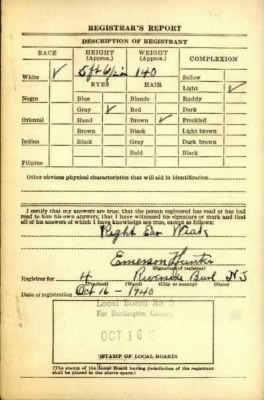 REGISTRAR'S REPORT
DESCRIPTION OF REGISTRANT
RACE HEIGHT (Approx.) WEIGHT (Approx.) COMPLEXION
White ✓ 5 ft 6 1/2 in 140 Sallow
EYES HAIR Light ✓
Negro Blue Blonde Ruddy
Gray ✓ Red Dark
Oriental Hazel Brown ✓ Freckled
Brown Black Light brown
Indian Black Gray Dark brown
Bald Black
Filipino
Other obvious physical characteristics that will aid in identification
I certify that my answers are true; that the person registered has read or has had
read to him his own answers; that I have witnessed his signature or mark and that
all of his answers of which I have knowledge are true, except as follows:
Right Ear Weak
Emerson Hunter
(Signature of registrar)
Registrar for 4 Riverside Burl N J
(Precinct) (Ward) (City or county) (State)
Date of registration Oct 16 - 1940
Local Board No.
For Burlington County
OCT 16
STAMP OF LOCAL BOARD
(The stamp of the Local Board having jurisdiction of the registrant
shall be placed in the above space.)